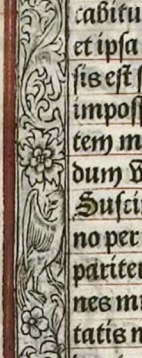 cabitu
et ipſa
ſis eſt ſ
impoſſ
tem m
dum v
Suſci
no per
pariter
nes mi
tatis n